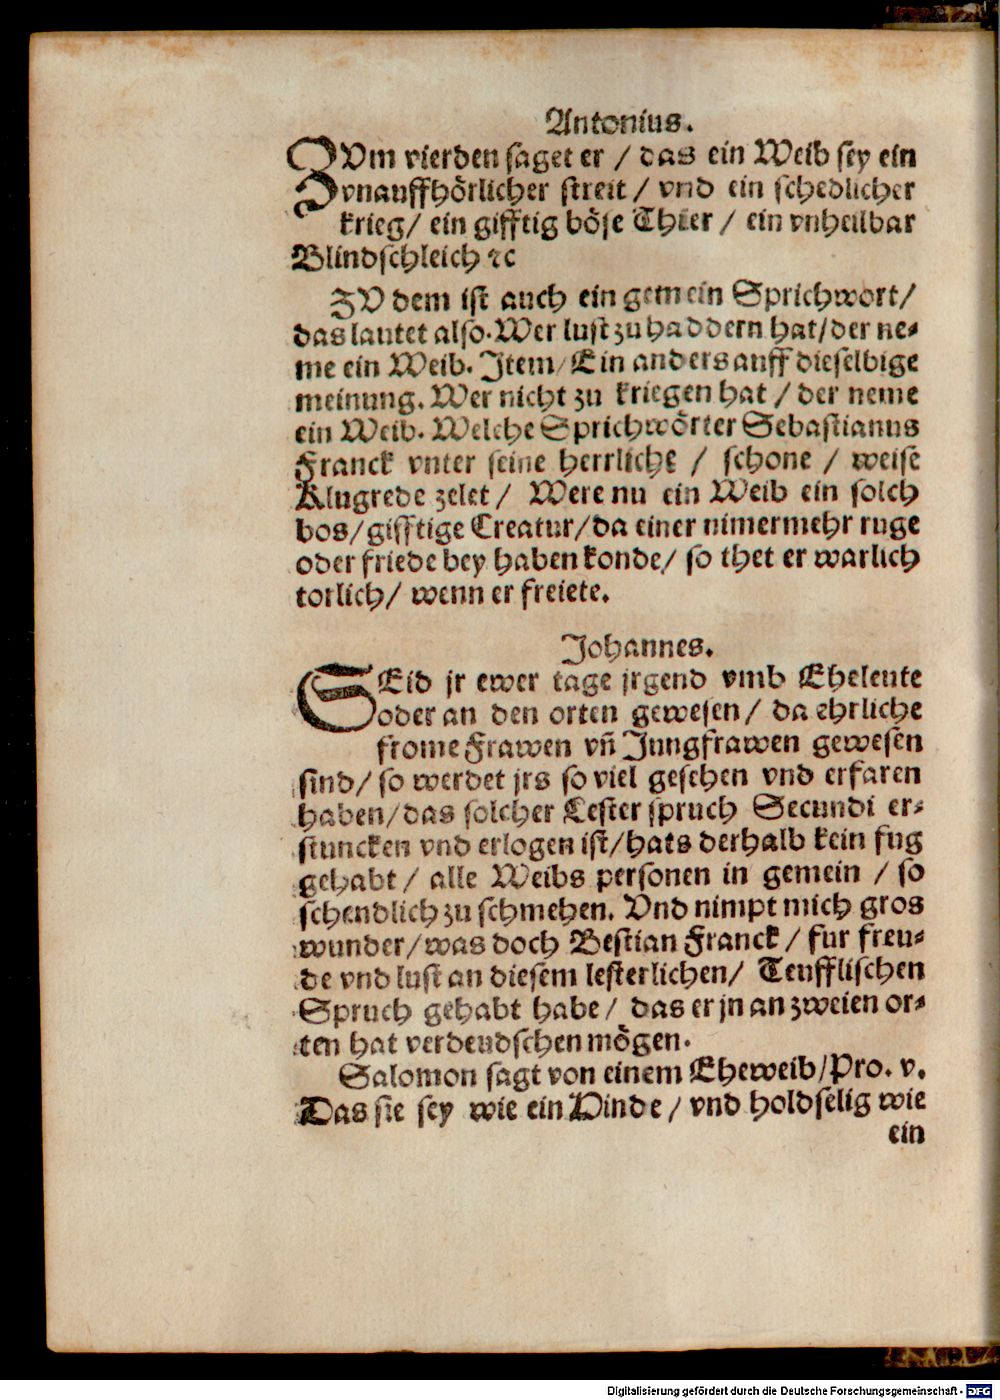 Antonius.
ZVm vierden saget er / das ein Weib sey ein
vnauffhörlicher streit / vnd ein schedlicher
krieg/ ein gifftig böse Thier / ein vnheilbar
Blindschleich ꝛc
ZV dem ist auch ein gemein Sprichwort/
das lautet also. Wer lust zu haddern hat/der ne-
me ein Weib. Item/ Ein anders auff dieselbige
meinung. Wer nicht zu kriegen hat / der neme
ein Weib. Welche Sprichwörter Sebastianus
Franck vnter seine herrliche / schone / weise
Klugrede zelet / Were nu ein Weib ein solch
bos/gifftige Creatur/da einer nimermehr ruge
oder friede bey haben konde/ so thet er warlich
torlich/ wenn er freiete.
Johannes.
SEid jr ewer tage jrgend vmb Eheleute
oder an den orten gewesen/ da ehrliche
frome Frawen vñ Jungfrawen gewesen
sind/ so werdet jrs so viel gesehen vnd erfaren
haben/das solcher Lester spruch Secundi er-
stuncken vnd erlogen ist/hats derhalb kein fug
gehabt / alle Weibs personen in gemein / so
schendlich zu schmehen. Vnd nimpt mich gros
wunder/was doch Bestian Franck / fur freu-
de vnd lust an diesem lesterlichen/ Teufflischen
Spruch gehabt habe / das er jn an zweien or-
ten hat verdeudschen mögen.
Salomon sagt von einem Eheweib/Pro. v.
Das sie sey wie ein Hinde / vnd holdselig wie
ein
Digitalisierung gefördert durch die Deutsche Forschungsgemeinschaft - DFG